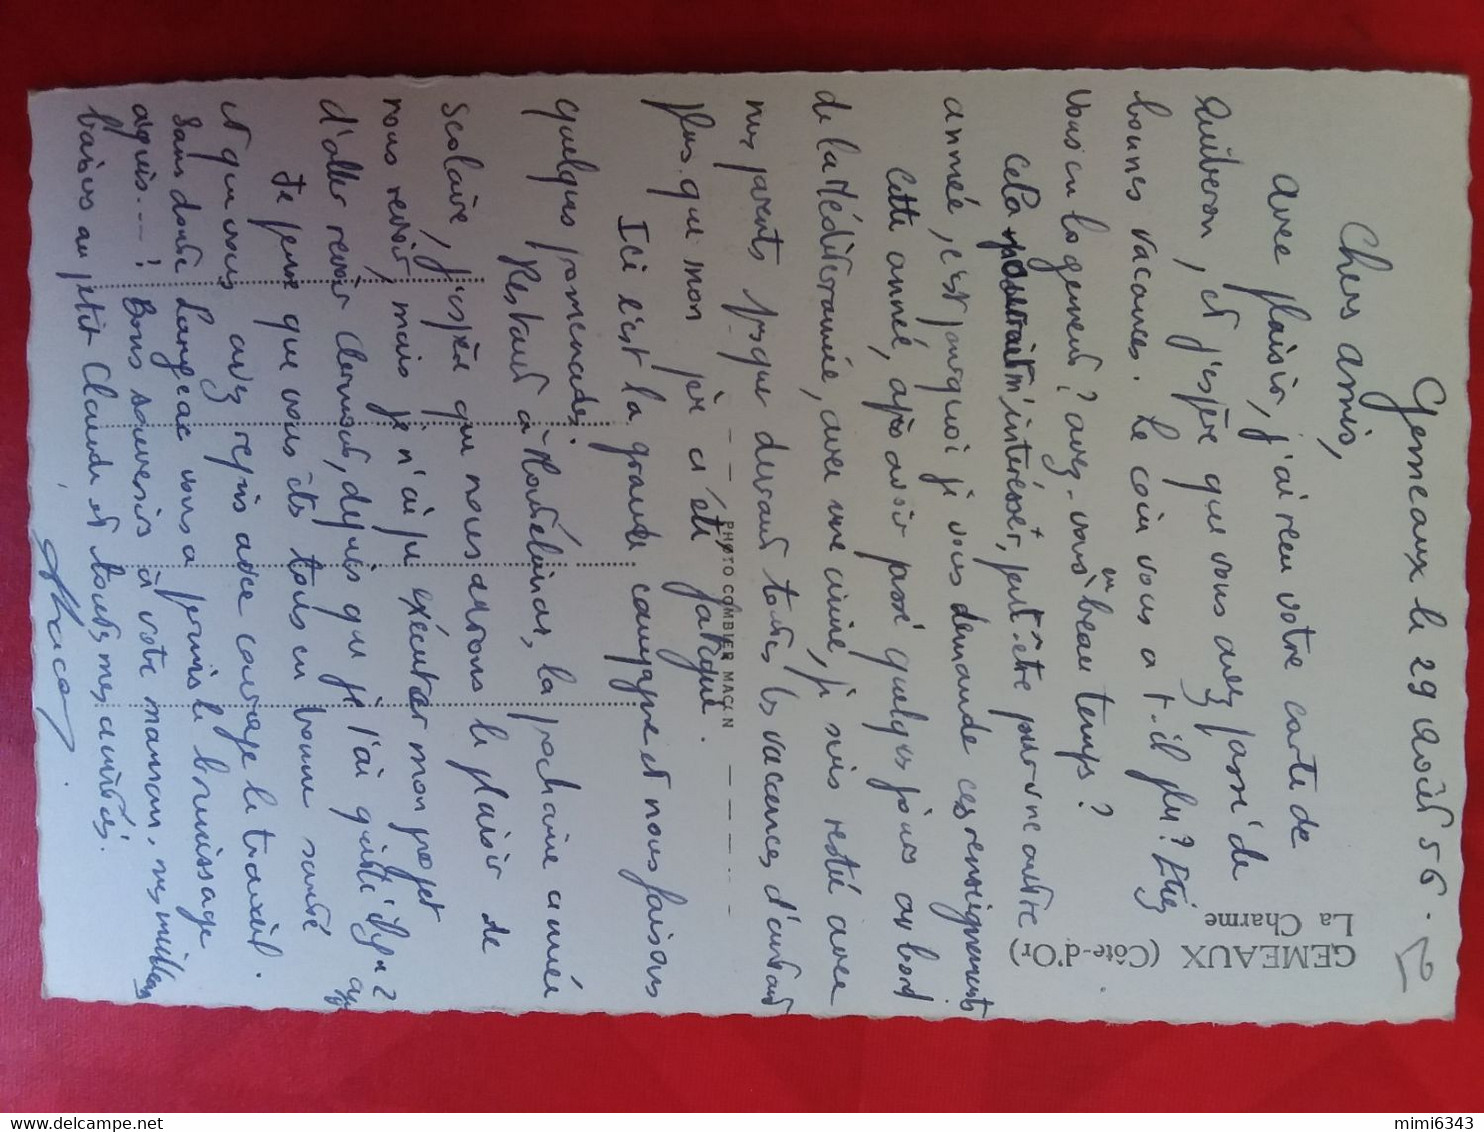 Gemeaux le 29 août 56.
Chers amis,
avec plaisir, j'ai reçu votre carte de
Quiberon, et j'espère que vous avez passé de
bonnes vacances. Le coin vous a t-il plu? Etiez
vous en logement? avez-vous eu beau temps?
cela m'intéresser, peut être pour une autre
année, c'est pourquoi je vous demande ces renseignements
Cette année, après avoir passé quelques jours au bord
de la Méditerranée, avec une amie, je suis resté avec
mes parents presque durant toutes les vacances, d'autant
plus que mon père a été fatigué.
Ici c'est la grande campagne et nous faisons
quelques promenades.
Restant à Montélimar, la prochaine année
scolaire, j'espère que nous aurons le plaisir de
nous revoir, mais je n'ai pu exécuter mon projet
d'aller revoir Clermont, depuis que je l'ai quitté il y a 2 
Je pense que vous êtes tous en bonne santé
et que vous avez repris avec courage le travail.
Sans doute Langeac vous a permis le brunissage
après...! Bons souvenirs à votre maman, mes meilleurs
baisers au petit Claude et toutes mes amitiés.
GEMEAUX (Côte-d'Or)
La Charme
PHOTO COMBIER MACON
delcampe.net
mimi6343